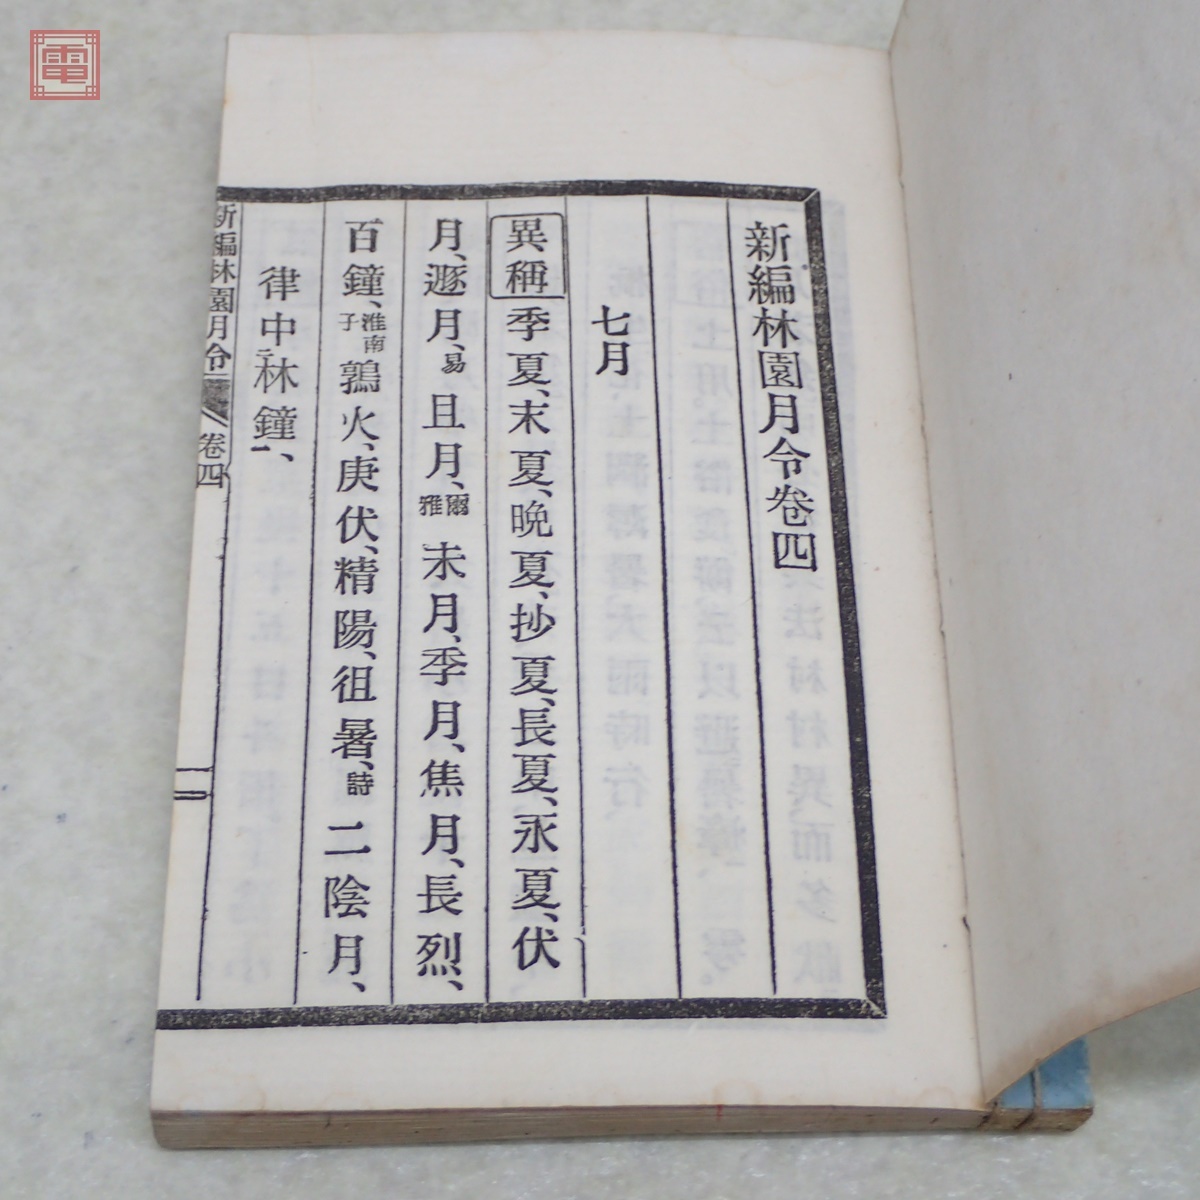 新編林園月令卷四
七月
異稱 季夏、末夏、晩夏、抄夏、長夏、永夏、伏
月、遯月、易 且月、爾雅 未月、季月、焦月、長烈、
百鐘、淮南子 鶉火、庚伏、精陽、徂暑、詩 二陰月、
律中林鐘、
新編林園月令 卷四 一
電